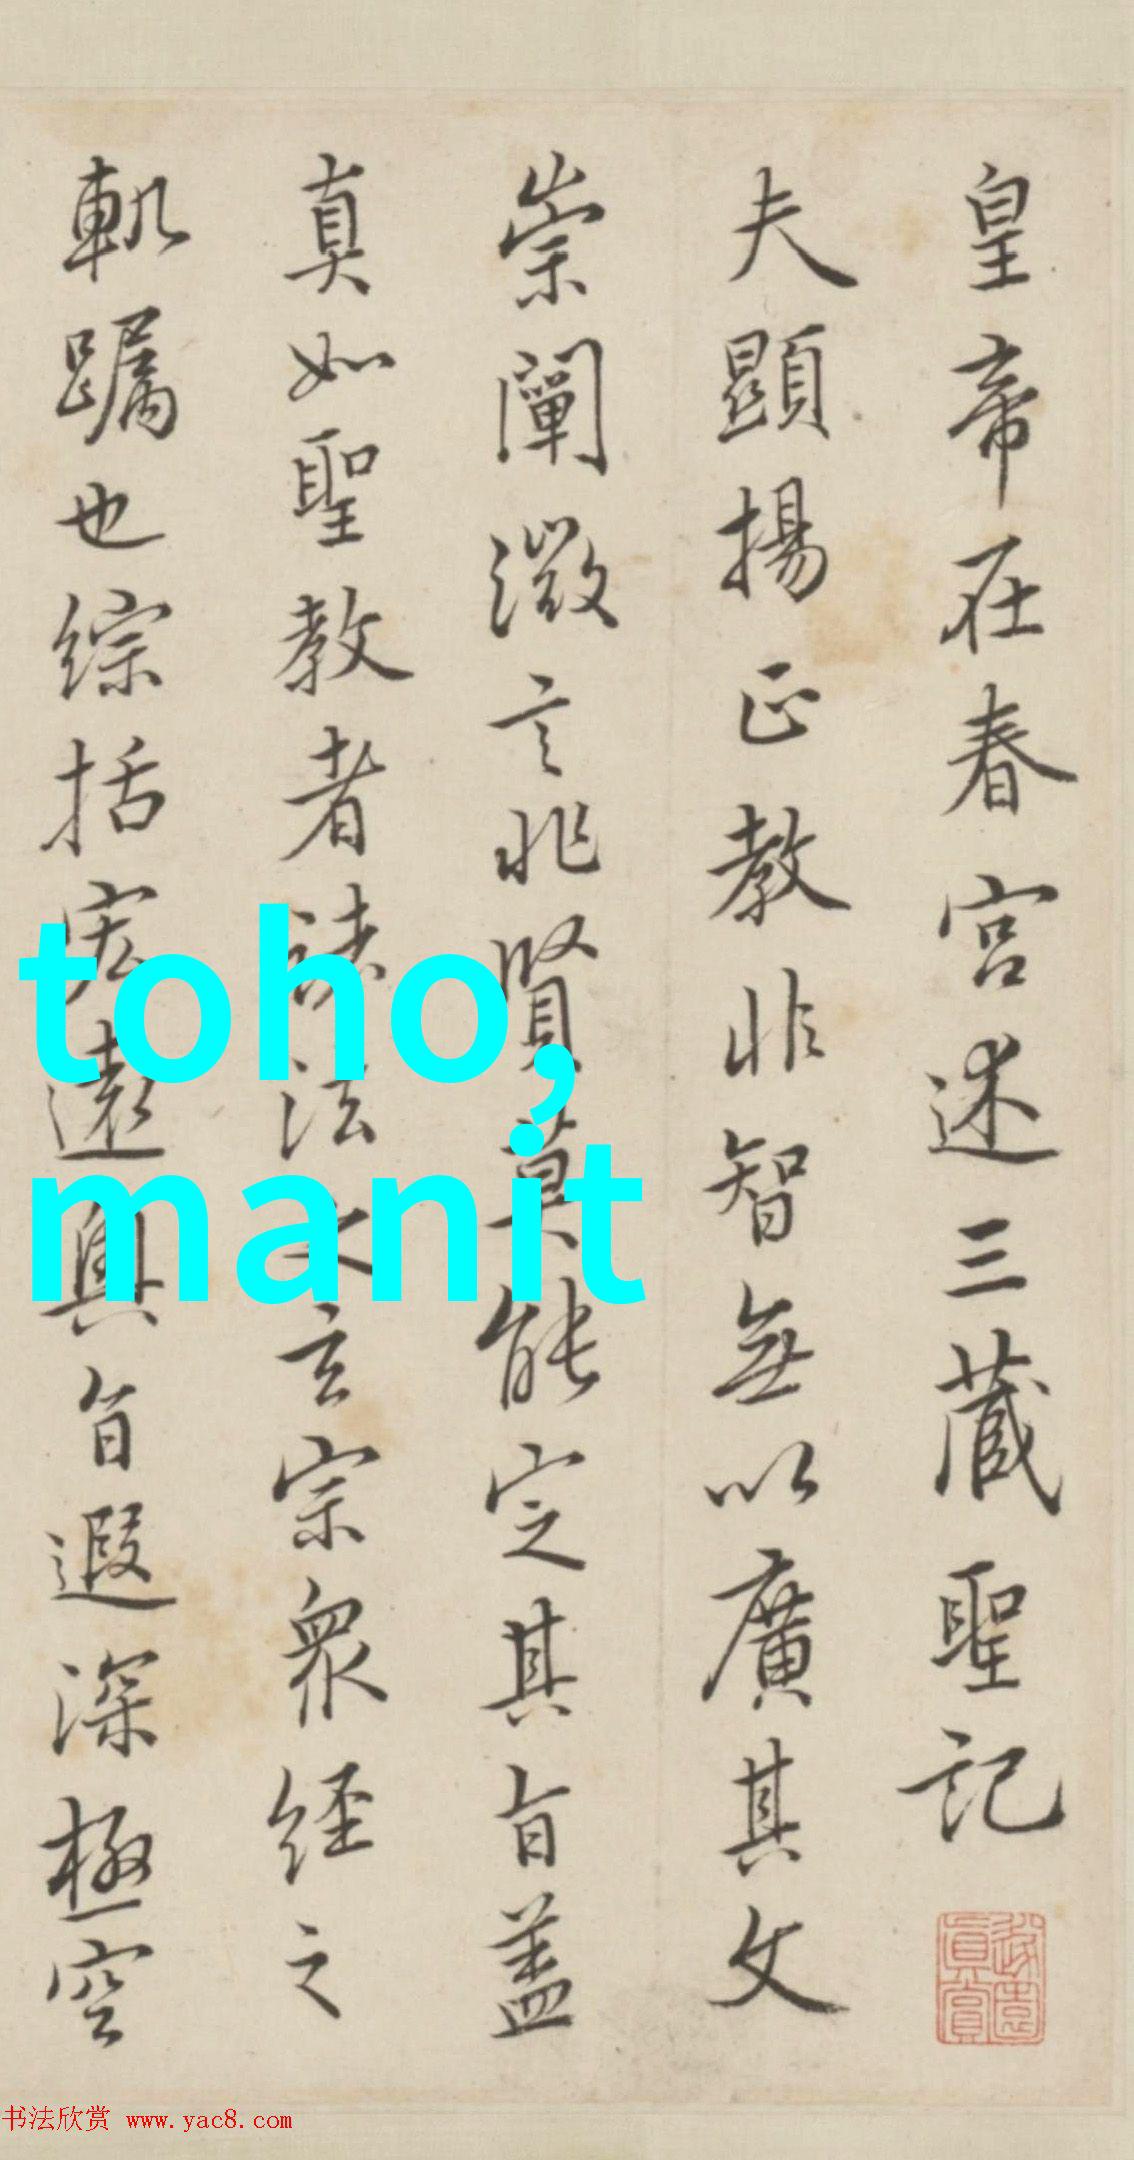 皇帝在春宮述三藏聖記
夫顯揚正教非智無以廣其文
崇闡微言非賢莫能定其旨蓋
真如聖教者諸法之玄宗眾經之
軌躅也綜括宏遠奧旨遐深極空
toho,
manit
真賞
书法欣赏 www.yac8.com